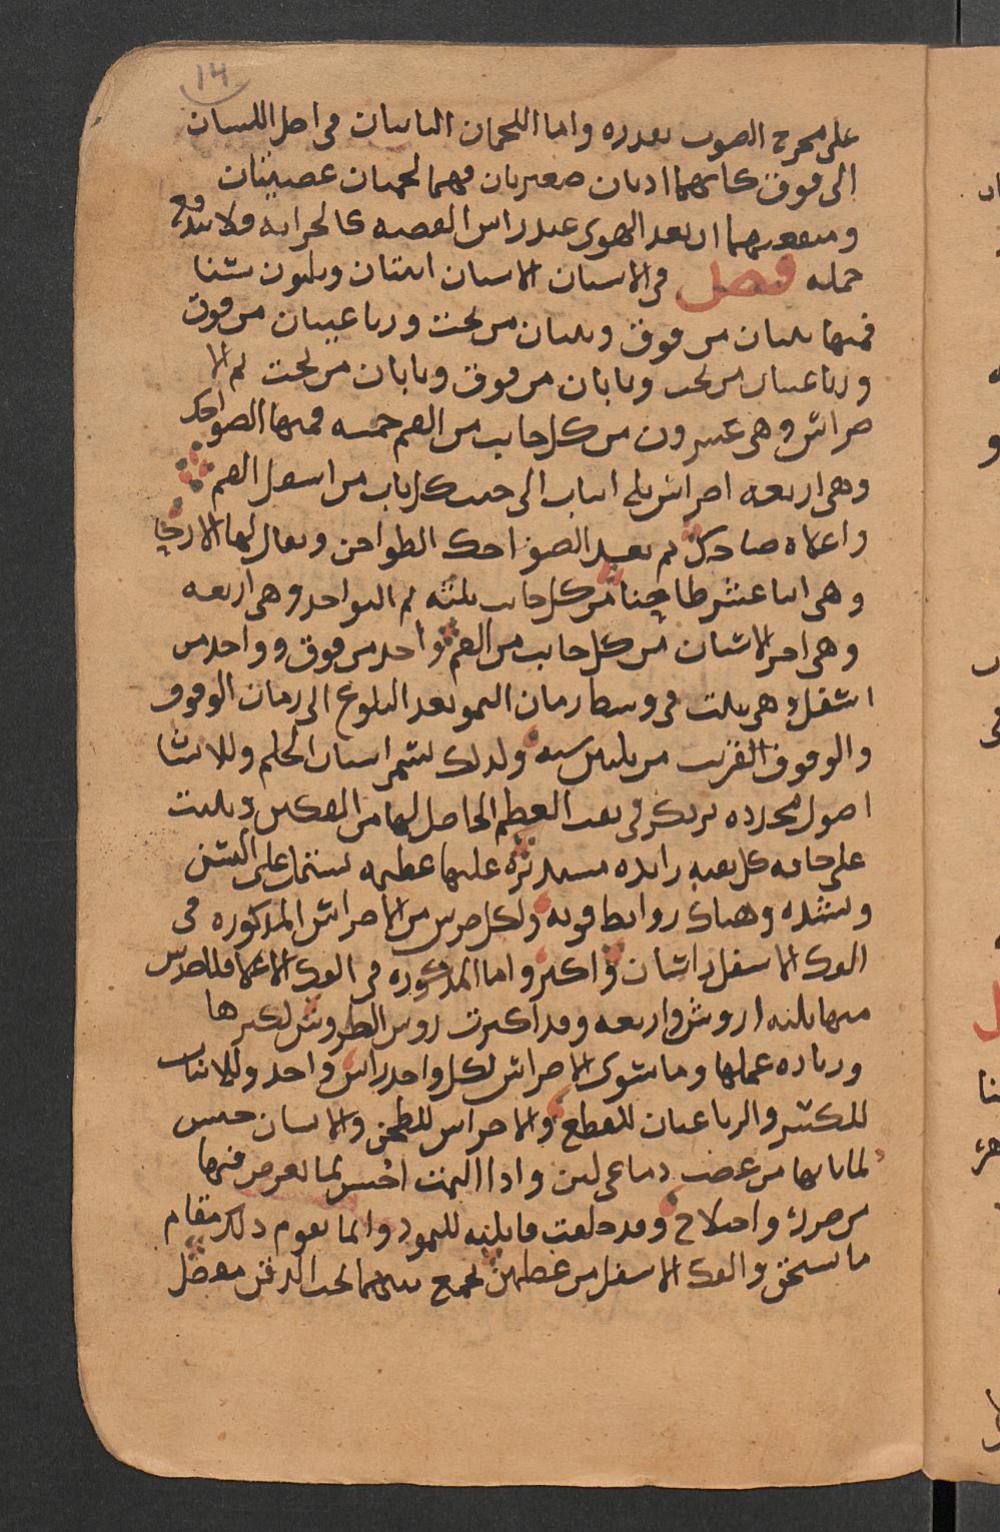 ١٤
على مخرج الصوت بقدره واما اللحمان الناتيان في اصل اللسان
الى فوق كانهما اذنان صغيرتان فهما لحمتان عصبيتان
ومنفعتهما ان بعد الهوى عند راس القصبه كالخزانه فلا يندفع
جمله فصل في الاسنان الاسنان اثنتان وثلثون سنا
فمنها ثنيتان من فوق وثنيتان من تحت ورباعيتان من فوق
ورباعيتان من تحت ونابان من فوق ونابان من تحت ثم الا
ضراس وهى عشرون من كل جانب من الفم خمسه فمنها الضواحك
وهى اربعه اضراس يلى الناب الى جنب كل ناب من اسفل الفم
واعلاه ضاحك ثم بعد الضواحك الطواحن ويقال لها الارحا
وهى اثنا عشر طاحنا من كل جانب ثلثه ثم النواجد وهى اربعه
وهى اخر الاسنان من كل جانب من الفم واحد من فوق وواحد من
اسفل وهى تنبت في وسط زمان النمو بعد البلوغ الى زمان الوقوف
والوقوف القريب من ثلثين سنه ولدلك تسمى اسنان الحلم وللاسنا
اصول محدده ترتكز في ثقب العظم الحامل لها من الفكين وتنبت
على حافه كل ثقبه زايده مستديره عليها عظيمه تشتمل على السن
وتشده وهناك روابط قويه ولكل ضرس من الاضراس المدكوره في
الفك الاسفل راسان واكثر واما المدكوره في الفك الاعلا فللضرس
منها ثلثه اروس واربعه وقد اكثرت روس الضروس لكبرها
وزياده عملها وما سوى الاضراس لكل واحد راس واحد وللانياب
للكسر والرباعيات للقطع والاضراس للطحن والاسنان حس
لما ياتيها من عصب دماغى لين وادا التمت احس لما يعرض فيها
من ضرر واختلاج وقد خلقت قابله للنمو دوائما يقوم دلك مقام
ما ينسحق والفك الاسفل من عظمين تجمع بينهما تحت الدقن مفصل